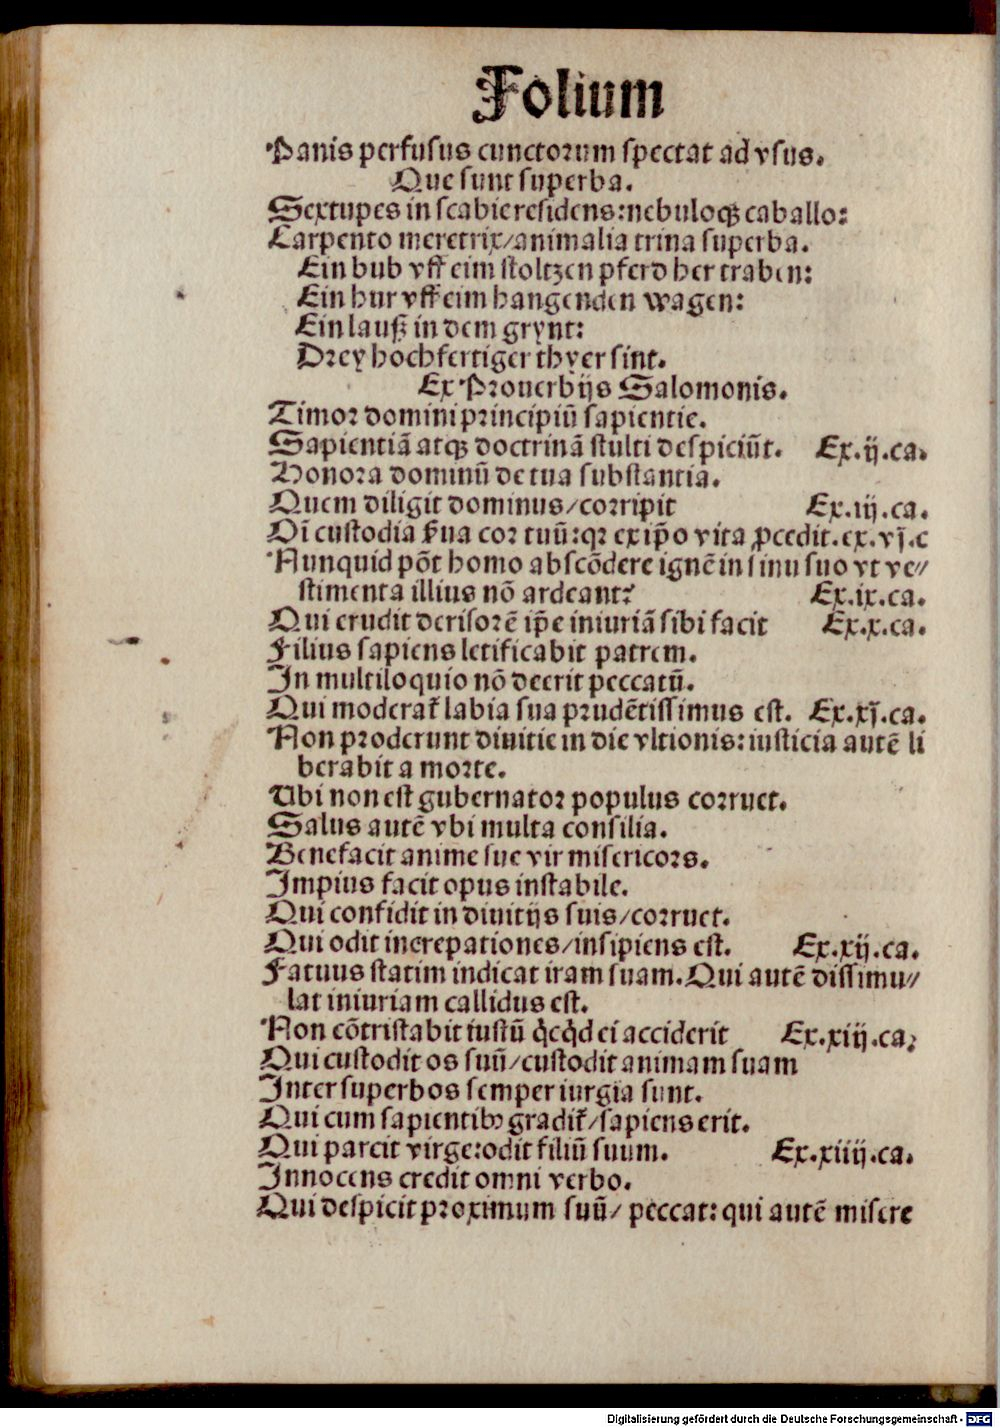 Folium
Panis perfusus cunctorum spectat ad vsus.
Que sunt superba.
Sextupes in scabie residens: nebuloqȝ caballo:
Carpento meretrix/ animalia trina superba.
Ein bub vff eim stoltzen pferd her traben:
Ein hur vff eim hangenden wagen:
Ein lauß in dem grynt:
Drey hochfertiger thyer sint.
Ex Prouerbijs Salomonis.
Timor domini principiū sapientie.
Sapientiā atqȝ doctrinā stulti despiciūt. Ex.ij.ca.
Honora dominū de tua substantia.
Quem diligit dominus/ corripit Ex.iij.ca.
Oī custodia ẜua cor tuū: qꝛ ex ip̄o vita ꝓcedit. ex.vj.c
Nunquid pōt homo abscōdere ignē in sinu suo vt ve//
stimenta illius nō ardeant? Ex.ix.ca.
Qui erudit derisorē ip̄e iniuriā sibi facit Ex.x.ca.
Filius sapiens letificabit patrem.
In multiloquio nō deerit peccatū.
Qui moderat᷑ labia sua prudētissimus est. Ex.xj.ca.
Non proderunt diuitie in die vltionis: iusticia autē li
berabit a morte.
Vbi non est gubernator populus corruet.
Salus autē vbi multa consilia.
Benefacit anime sue vir misericors.
Impius facit opus instabile.
Qui confidit in diuitijs suis/ corruet.
Qui odit increpationes/ insipiens est. Ex.xij.ca.
Fatuus statim indicat iram suam. Qui autē dissimu//
lat iniuriam callidus est.
Non cōtristabit iustū qͥcqͥd ei acciderit Ex.xiij.ca.
Qui custodit os suū/ custodit animam suam
Inter superbos semper iurgia sunt.
Qui cum sapientibꝰ gradit᷑/ sapiens erit.
Qui parcit virge: odit filiū suum. Ex.xiiij.ca.
Innocens credit omni verbo.
Qui despicit proximum suū/ peccat: qui autē misere
Digitalisierung gefördert durch die Deutsche Forschungsgemeinschaft - DFG